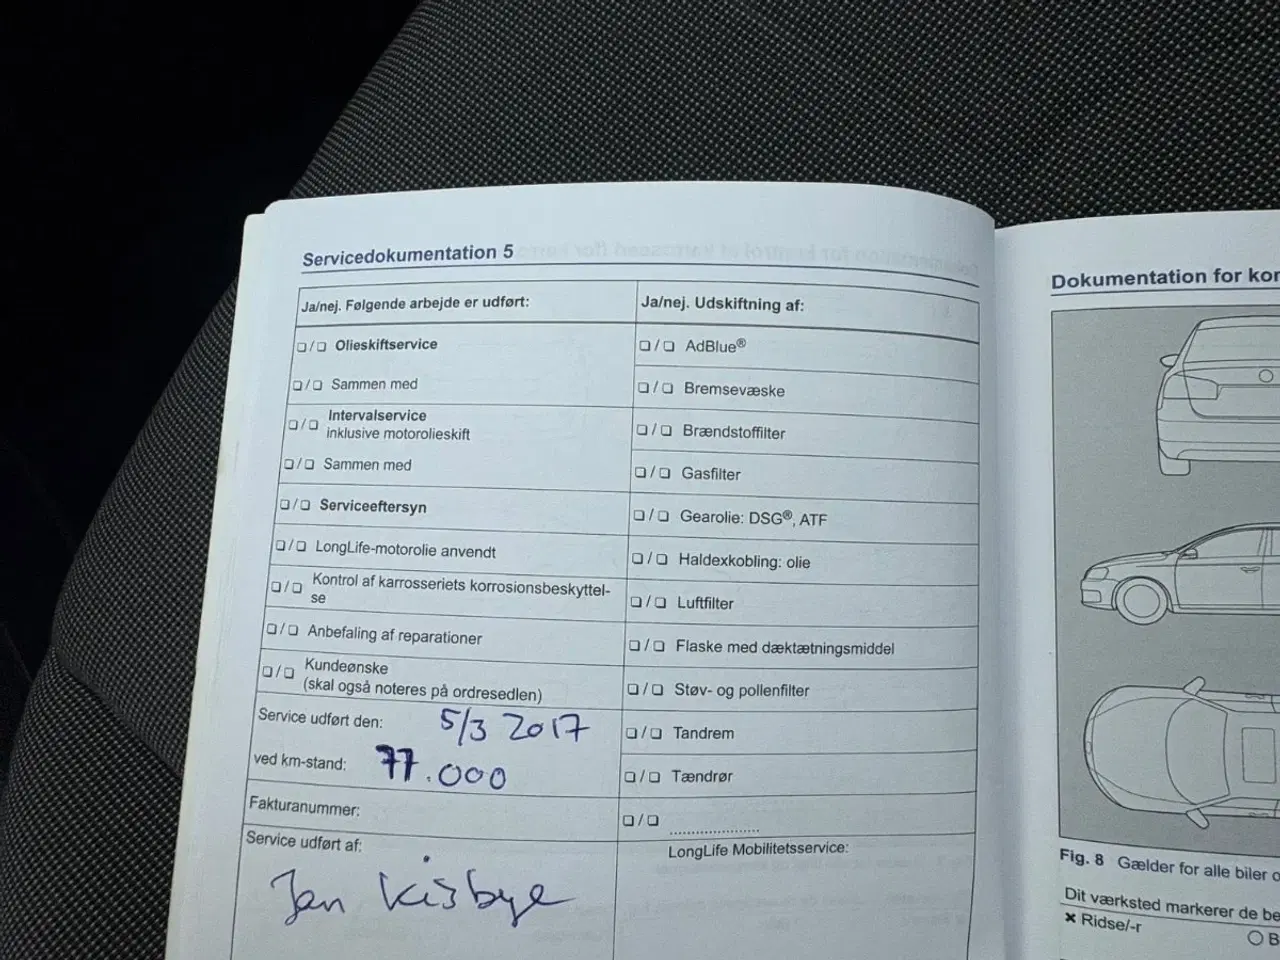 Servicedokumentation 5
Ja/nej. Følgende arbejde er udført:
❑ / ❑ Olieskiftservice
❑ / ❑ Sammen med
❑ / ❑ Intervalservice
inklusive motorolieskift
❑ / ❑ Sammen med
❑ / ❑ Serviceeftersyn
❑ / ❑ LongLife-motorolie anvendt
❑ / ❑ Kontrol af karrosseriets korrosionsbeskyttel-
se
❑ / ❑ Anbefaling af reparationer
❑ / ❑ Kundeønske
(skal også noteres på ordresedlen)
Service udført den: 5/3 2017
ved km-stand: 77.000
Fakturanummer:
Service udført af:
Jan Kisbye
Ja/nej. Udskiftning af:
❑ / ❑ AdBlue®
❑ / ❑ Bremsevæske
❑ / ❑ Brændstoffilter
❑ / ❑ Gasfilter
❑ / ❑ Gearolie: DSG®, ATF
❑ / ❑ Haldexkobling: olie
❑ / ❑ Luftfilter
❑ / ❑ Flaske med dæktætningsmiddel
❑ / ❑ Støv- og pollenfilter
❑ / ❑ Tandrem
❑ / ❑ Tændrør
❑ / ❑ ....................
LongLife Mobilitetsservice:
Dokumentation for kor
Fig. 8 Gælder for alle biler o
Dit værksted markerer de be
✖ Ridse/-r
○ B